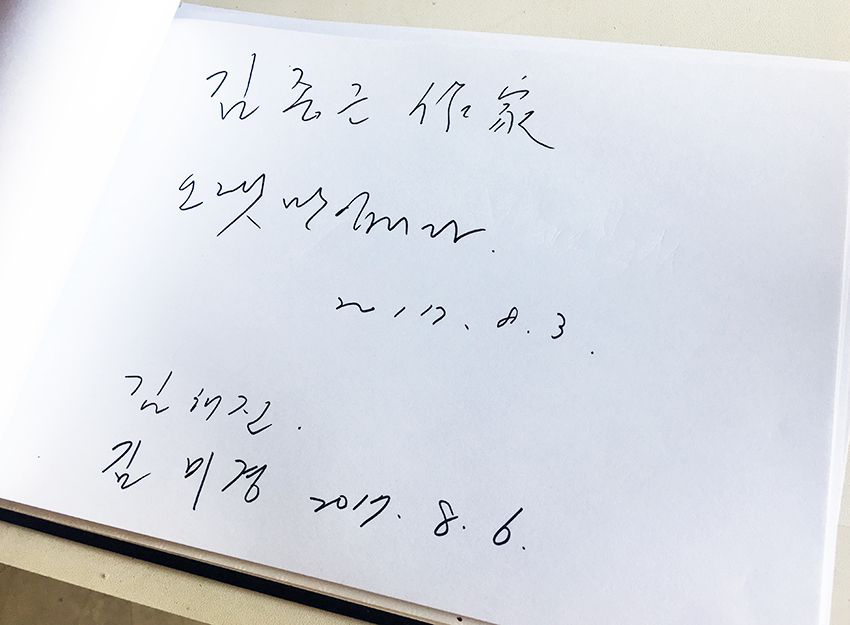 김 종 근 作家
오랫만
2017. 8. 3.
김 해진.
김 미경 2017. 8. 6.